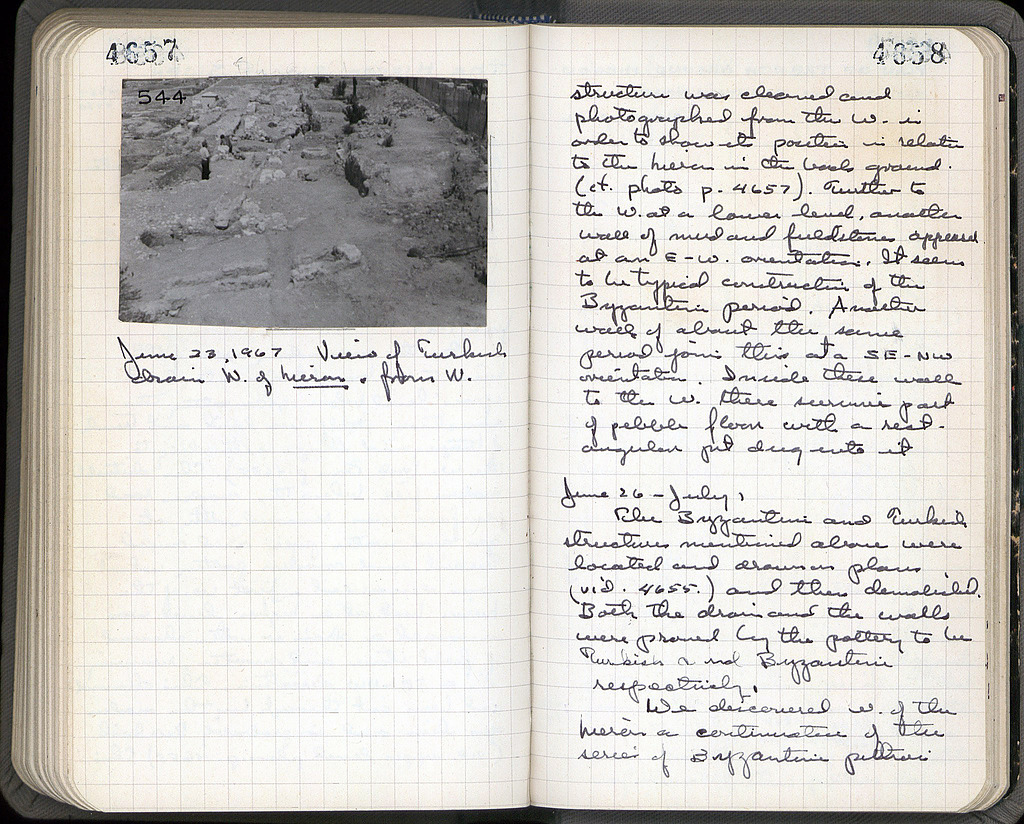 4657
544
June 23, 1967 View of Turkish
drain W. of heroon. from W.
4658
structure was cleaned and
photographed from the W. in
order to show its position in relation
to the heroon in the back ground.
(cf. photo p. 4657). Further to
the W. at a lower level, another
wall of mud and fieldstones appeared
at an E-W. orientation. It seems
to be typical construction of the
Byzantine period. Another
wall of about the same
period joins this at a SE-NW
orientation. Inside these walls
to the W. there survives part
of pebble floor with a rect-
angular pit dug into it
June 26 - July 1
The Byzantine and Turkish
structures mentioned above were
located and drawn on plans
(vid. 4655.) and then demolished.
Both the drain and the walls
were proved by the pottery to be
Turkish and Byzantine
respectively.
We discovered W. of the
heroon a continuation of the
series of Byzantine